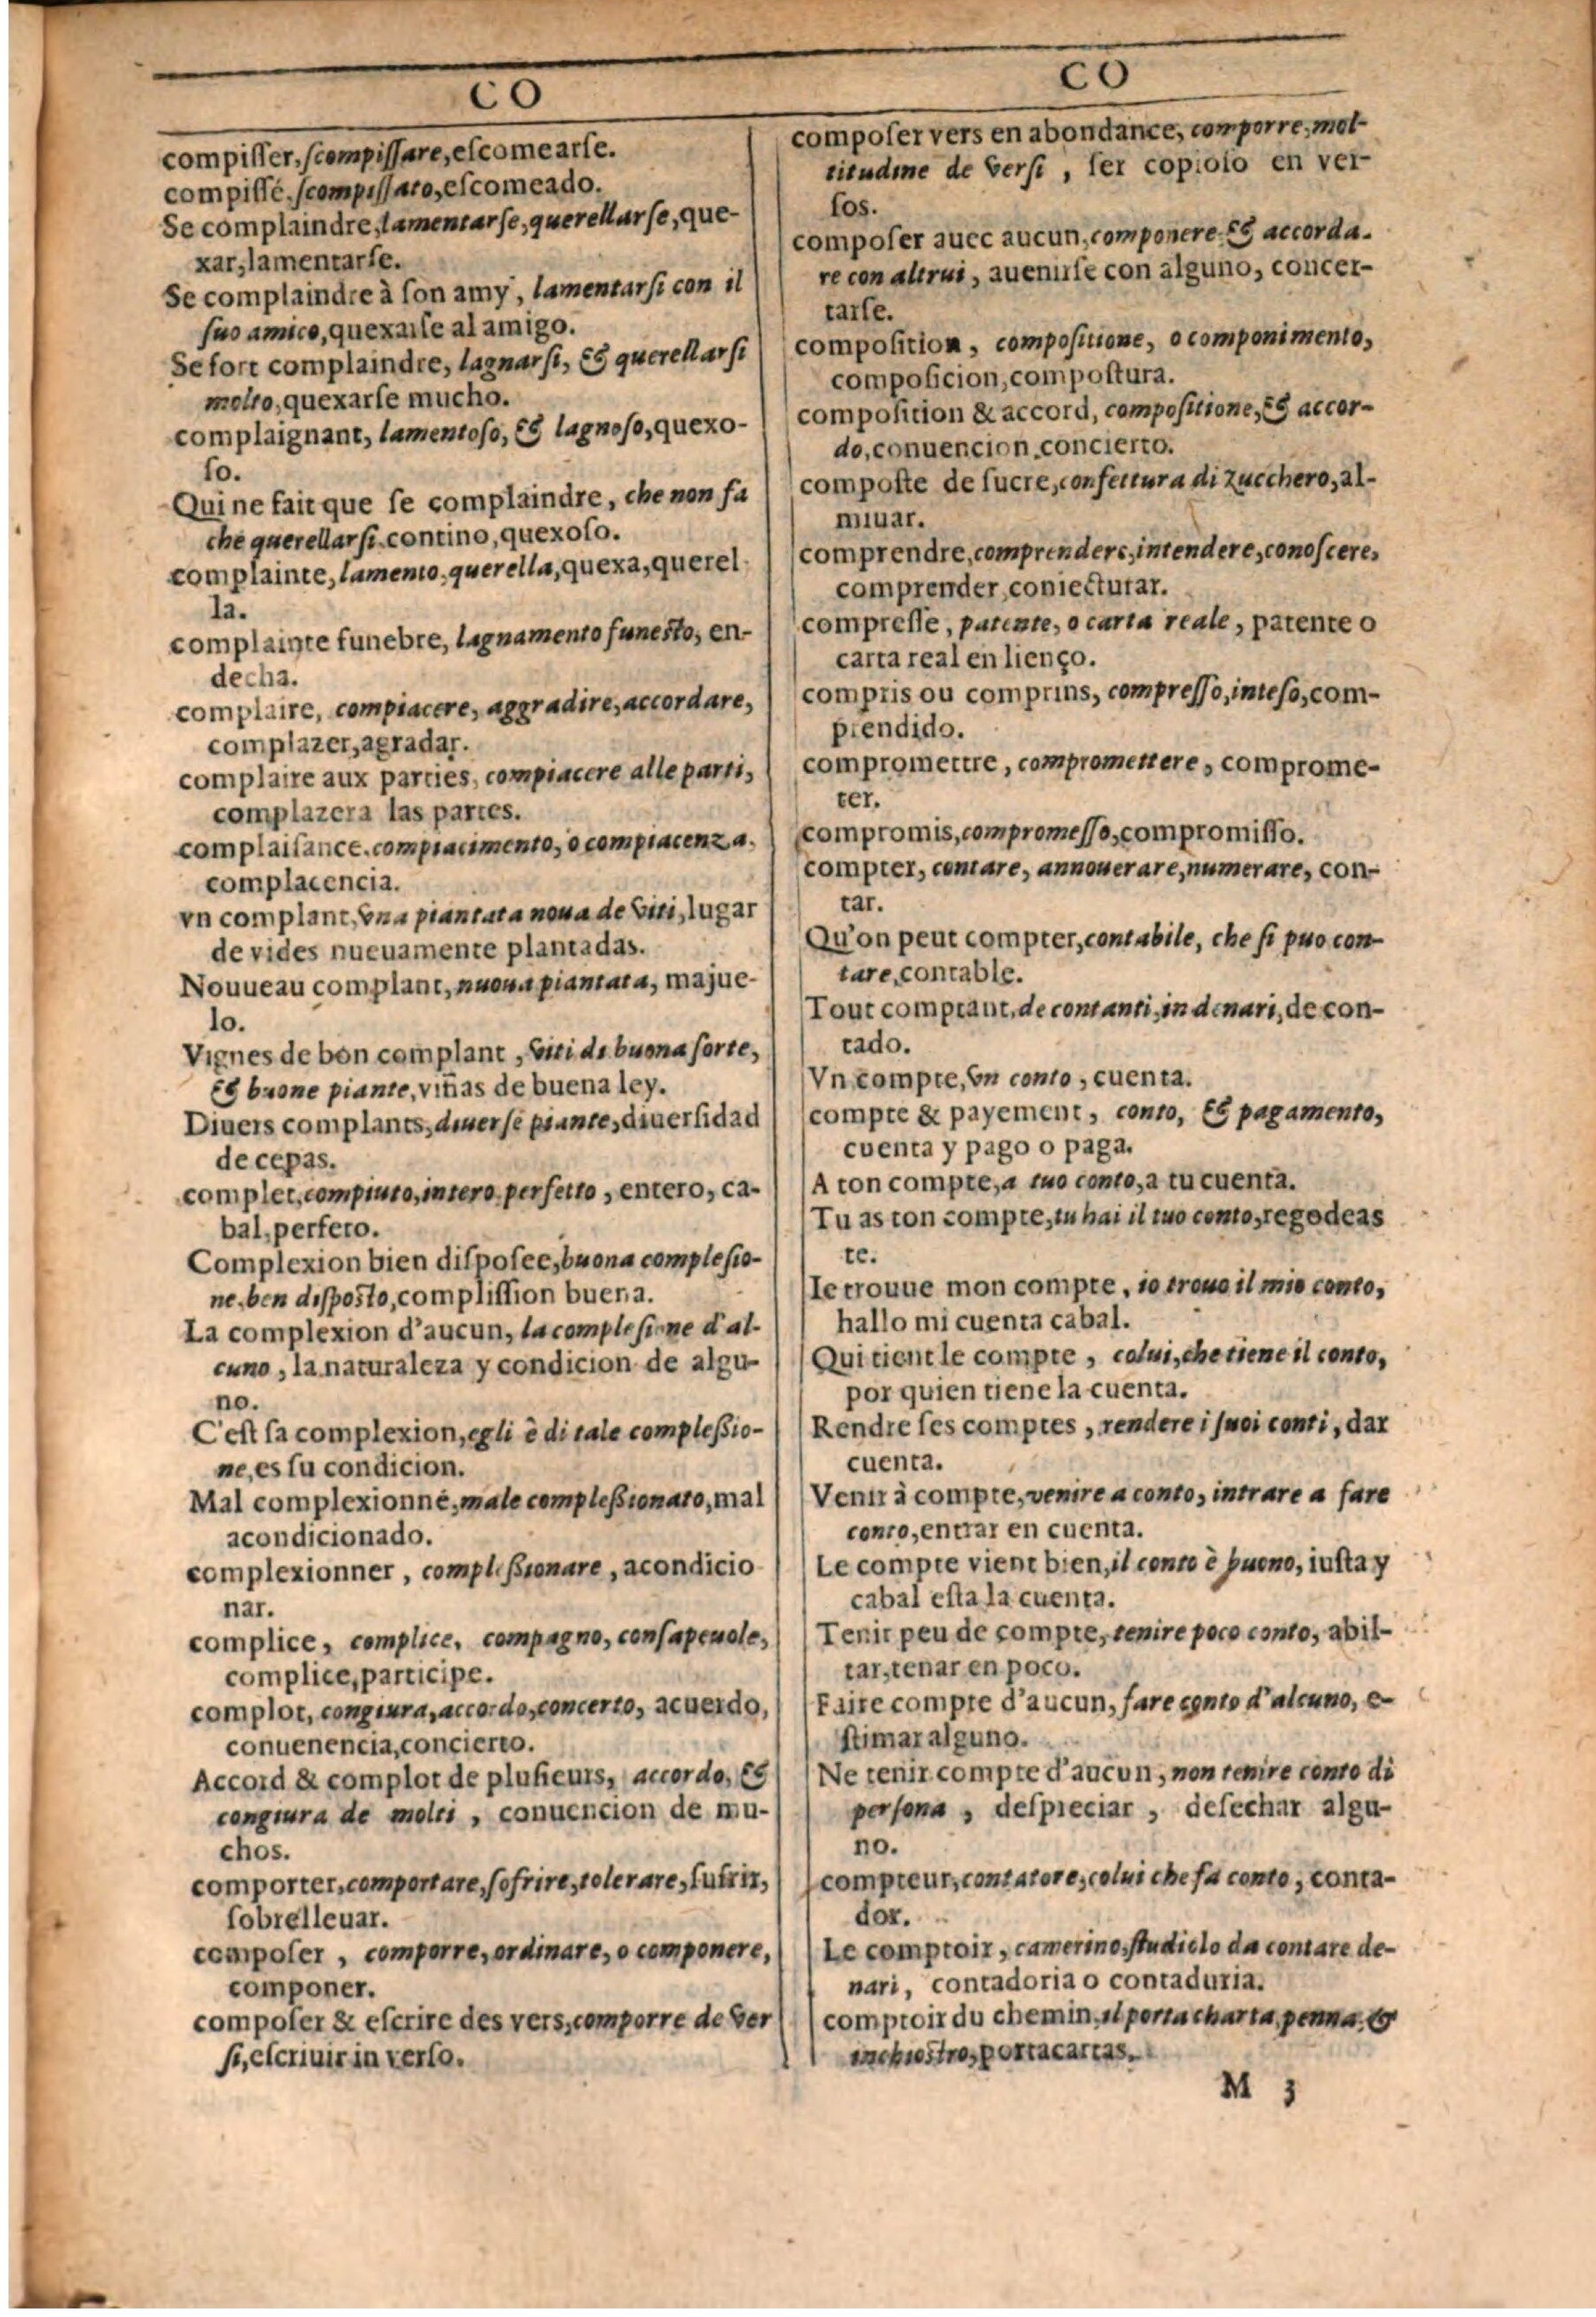 CO
compiſſer, ſcompiſſare, eſcomearſe.
compiſſé, ſcompiſſato, eſcomeado.
Se complaindre, lamentarſe, querellarſe, que-
xar, lamentarſe.
Se complaindre à ſon amy, lamentarſi con il
ſuo amico, quexarſe al amigo.
Se fort complaindre, lagnarſi, & querellarſi
molto, quexarſe mucho.
complaignant, lamentoſo, & lagnoſo, quexo-
ſo.
Qui ne fait que ſe complaindre, che non fa
che querellarſi contino, quexoſo.
complainte, lamento, querella, quexa, querel
la.
complainte funebre, lagnamento funeſto, en-
decha.
complaire, compiacere, aggradire, accordare,
complazer, agradar.
complaire aux parties, compiacere alle parti,
complazer a las partes.
complaiſance, compiacimento, o compiacenza,
complacencia.
vn complant, vna piantata noua de viti, lugar
de vides nueuamente plantadas.
Nouueau complant, nuoua piantata, majue-
lo.
Vignes de bon complant, viti di buona ſorte,
& buone piante, viñas de buena ley.
Diuers complants, diuerſe piante, diuerſidad
de cepas.
complet, compiuto, intero, perfetto, entero, ca-
bal, perfeto.
Complexion bien diſpoſee, buona compleſio-
ne, ben diſpoſto, compliſſion buena.
La complexion d'aucun, la compleſione d'al-
cuno, la naturaleza y condicion de algu-
no.
C'eſt ſa complexion, egli è di tale compleſsio-
ne, es ſu condicion.
Mal complexionné, male compleſsionato, mal
acondicionado.
complexionner, compleſsionare, acondicio
nar.
complice, complice, compagno, conſapeuole,
complice, participe.
complot, congiura, accordo, concerto, acuerdo,
conuenencia, concierto.
Accord & complot de pluſieurs, accordo, &
congiura de molti, conuencion de mu-
chos.
comporter, comportare, ſofrire, tolerare, ſufrir,
ſobrelleuar.
compoſer, comporre, ordinare, o componere,
componer.
compoſer & eſcrire des vers, comporre de ver
ſi, eſcriuir in verſo.
CO
compoſer vers en abondance, comporre, mol-
titudine de verſi, ſer copioſo en ver-
ſos.
compoſer auec aucun, componere & accorda-
re con altrui, auenirſe con alguno, concer-
tarſe.
compoſition, compoſitione, o componimento,
compoſicion, compoſtura.
compoſition & accord, compoſitione, & accor-
do, conuencion, concierto.
compoſte de ſucre, confettura di zucchero, al-
miuar.
comprendre, comprendere, intendere, conoſcere,
comprender, coniecturar.
compreſſe, patente, o carta reale, patente o
carta real en lienço.
compris ou comprins, compreſſo, inteſo, com-
prendido.
compromettre, compromettere, comprome-
ter.
compromis, compromeſſo, compromiſſo.
compter, contare, annouerare, numerare, con-
tar.
Qu'on peut compter, contabile, che ſi puo con-
tare, contable.
Tout comptant, de contanti, in denari, de con-
tado.
Vn compte, vn conto, cuenta.
compte & payement, conto, & pagamento,
cuenta y pago o paga.
A ton compte, a tuo conto, a tu cuenta.
Tu as ton compte, tu hai il tuo conto, regodeas
te.
Ie trouue mon compte, io trouo il mio conto,
hallo mi cuenta cabal.
Qui tient le compte, colui, che tiene il conto,
por quien tiene la cuenta.
Rendre ſes comptes, rendere i ſuoi conti, dar
cuenta.
Venir à compte, venire a conto, intrare a fare
conto, entrar en cuenta.
Le compte vient bien, il conto è buono, iuſta y
cabal eſta la cuenta.
Tenir peu de compte, tenire poco conto, abil-
tar, tenar en poco.
Faire compte d'aucun, fare conto d'alcuno, e-
ſtimar alguno.
Ne tenir compte d'aucun, non tenire conto di
perſona, deſpreciar, deſechar algu-
no.
compteur, contatore, colui che fa conto, conta-
dor.
Le comptoir, camerino, ſtudiolo da contare de-
nari, contadoria o contaduria.
comptoir du chemin, il porta charta, penna, &
inchioſtro, portacartas.
M 3